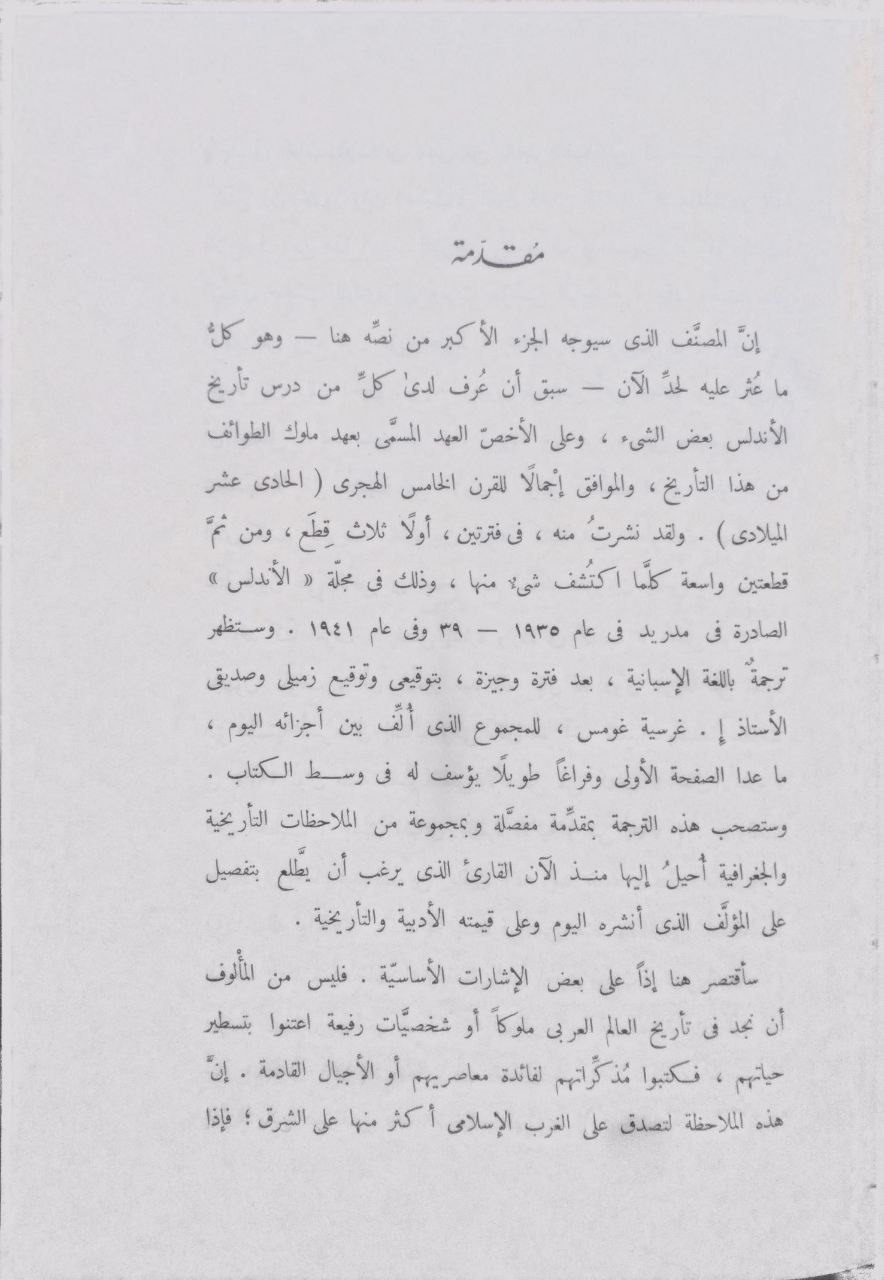 مُقدّمة
إنَّ المصنَّف الذى سيوجه الجزء الأكبر من نصِّه هنا — وهو كلُّ
ما عُثر عليه لحدِّ الآن — سبق أن عُرف لدىٰ كلِّ من درس تأريخ
الأندلس بعض الشىء ، وعلى الأخصّ العهد المسمَّى بعهد ملوك الطوائف
من هذا التأريخ ، والموافق إجْمالًا للقرن الخامس الهجرى ( الحادى عشر
الميلادى ) . ولقد نشرتُ منه ، فى فترتين ، أولًا ثلاث قِطَع ، ومن ثمَّ
قطعتين واسعة كلَّما اكتُشف شىءٌ منها ، وذلك فى مجلّة « الأندلس »
الصادرة فى مدريد فى عام ١٩٣٥ — ٣٩ وفى عام ١٩٤١ . وستظهر
ترجمةٌ باللغة الإسبانية ، بعد فترة وجيزة ، بتوقيعى وتوقيع زميلى وصديقى
الأستاذ إ . غرسية غومس ، للمجموع الذى أُلِّف بين أجزائه اليوم ،
ما عدا الصفحة الأولى وفراغاً طويلًا يؤسف له فى وسط الكتاب .
وستصحب هذه الترجمة بمقدِّمة مفصَّلة وبمجموعة من الملاحظات التأريخية
والجغرافية أُحيلُ إليها منذ الآن القارئ الذى يرغب أن يطَّلع بتفصيل
على المؤلَّف الذى أنشره اليوم وعلى قيمته الأدبية والتأريخية .
سأقتصر هنا إذاً على بعض الإشارات الأساسيّة . فليس من المأْلوف
أن نجد فى تأريخ العالم العربى ملوكاً أو شخصيَّات رفيعة اعتنوا بتسطير
حياتهم ، فكتبوا مُذكِّراتهم لفائدة معاصريهم أو الأجيال القادمة . إنَّ
هذه الملاحظة لتصدق على الغرب الإسلامى أكثر منها على الشرق ؛ فإذا